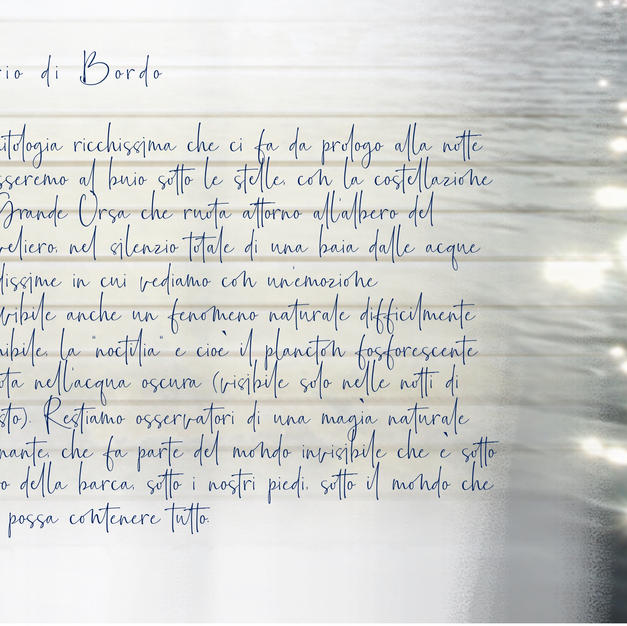 rio di Bordo
itologia ricchissima che ci fa da prologo alla notte
sseremo al buio sotto le stelle, con la costellazione
Grande Orsa che ruota attorno all'albero del
veliero, nel silenzio totale di una baia dalle acque
dissime in cui vediamo con un'emozione
vibile anche un fenomeno naturale difficilmente
nibile, la "noctilia" e cioè il plancton fosforescente
ota nell'acqua oscura (visibile solo nelle notti di
sto). Restiamo osservatori di una magia naturale
nante, che fa parte del mondo invisibile che è sotto
o della barca, sotto i nostri piedi, sotto il mondo che
possa contenere tutto.